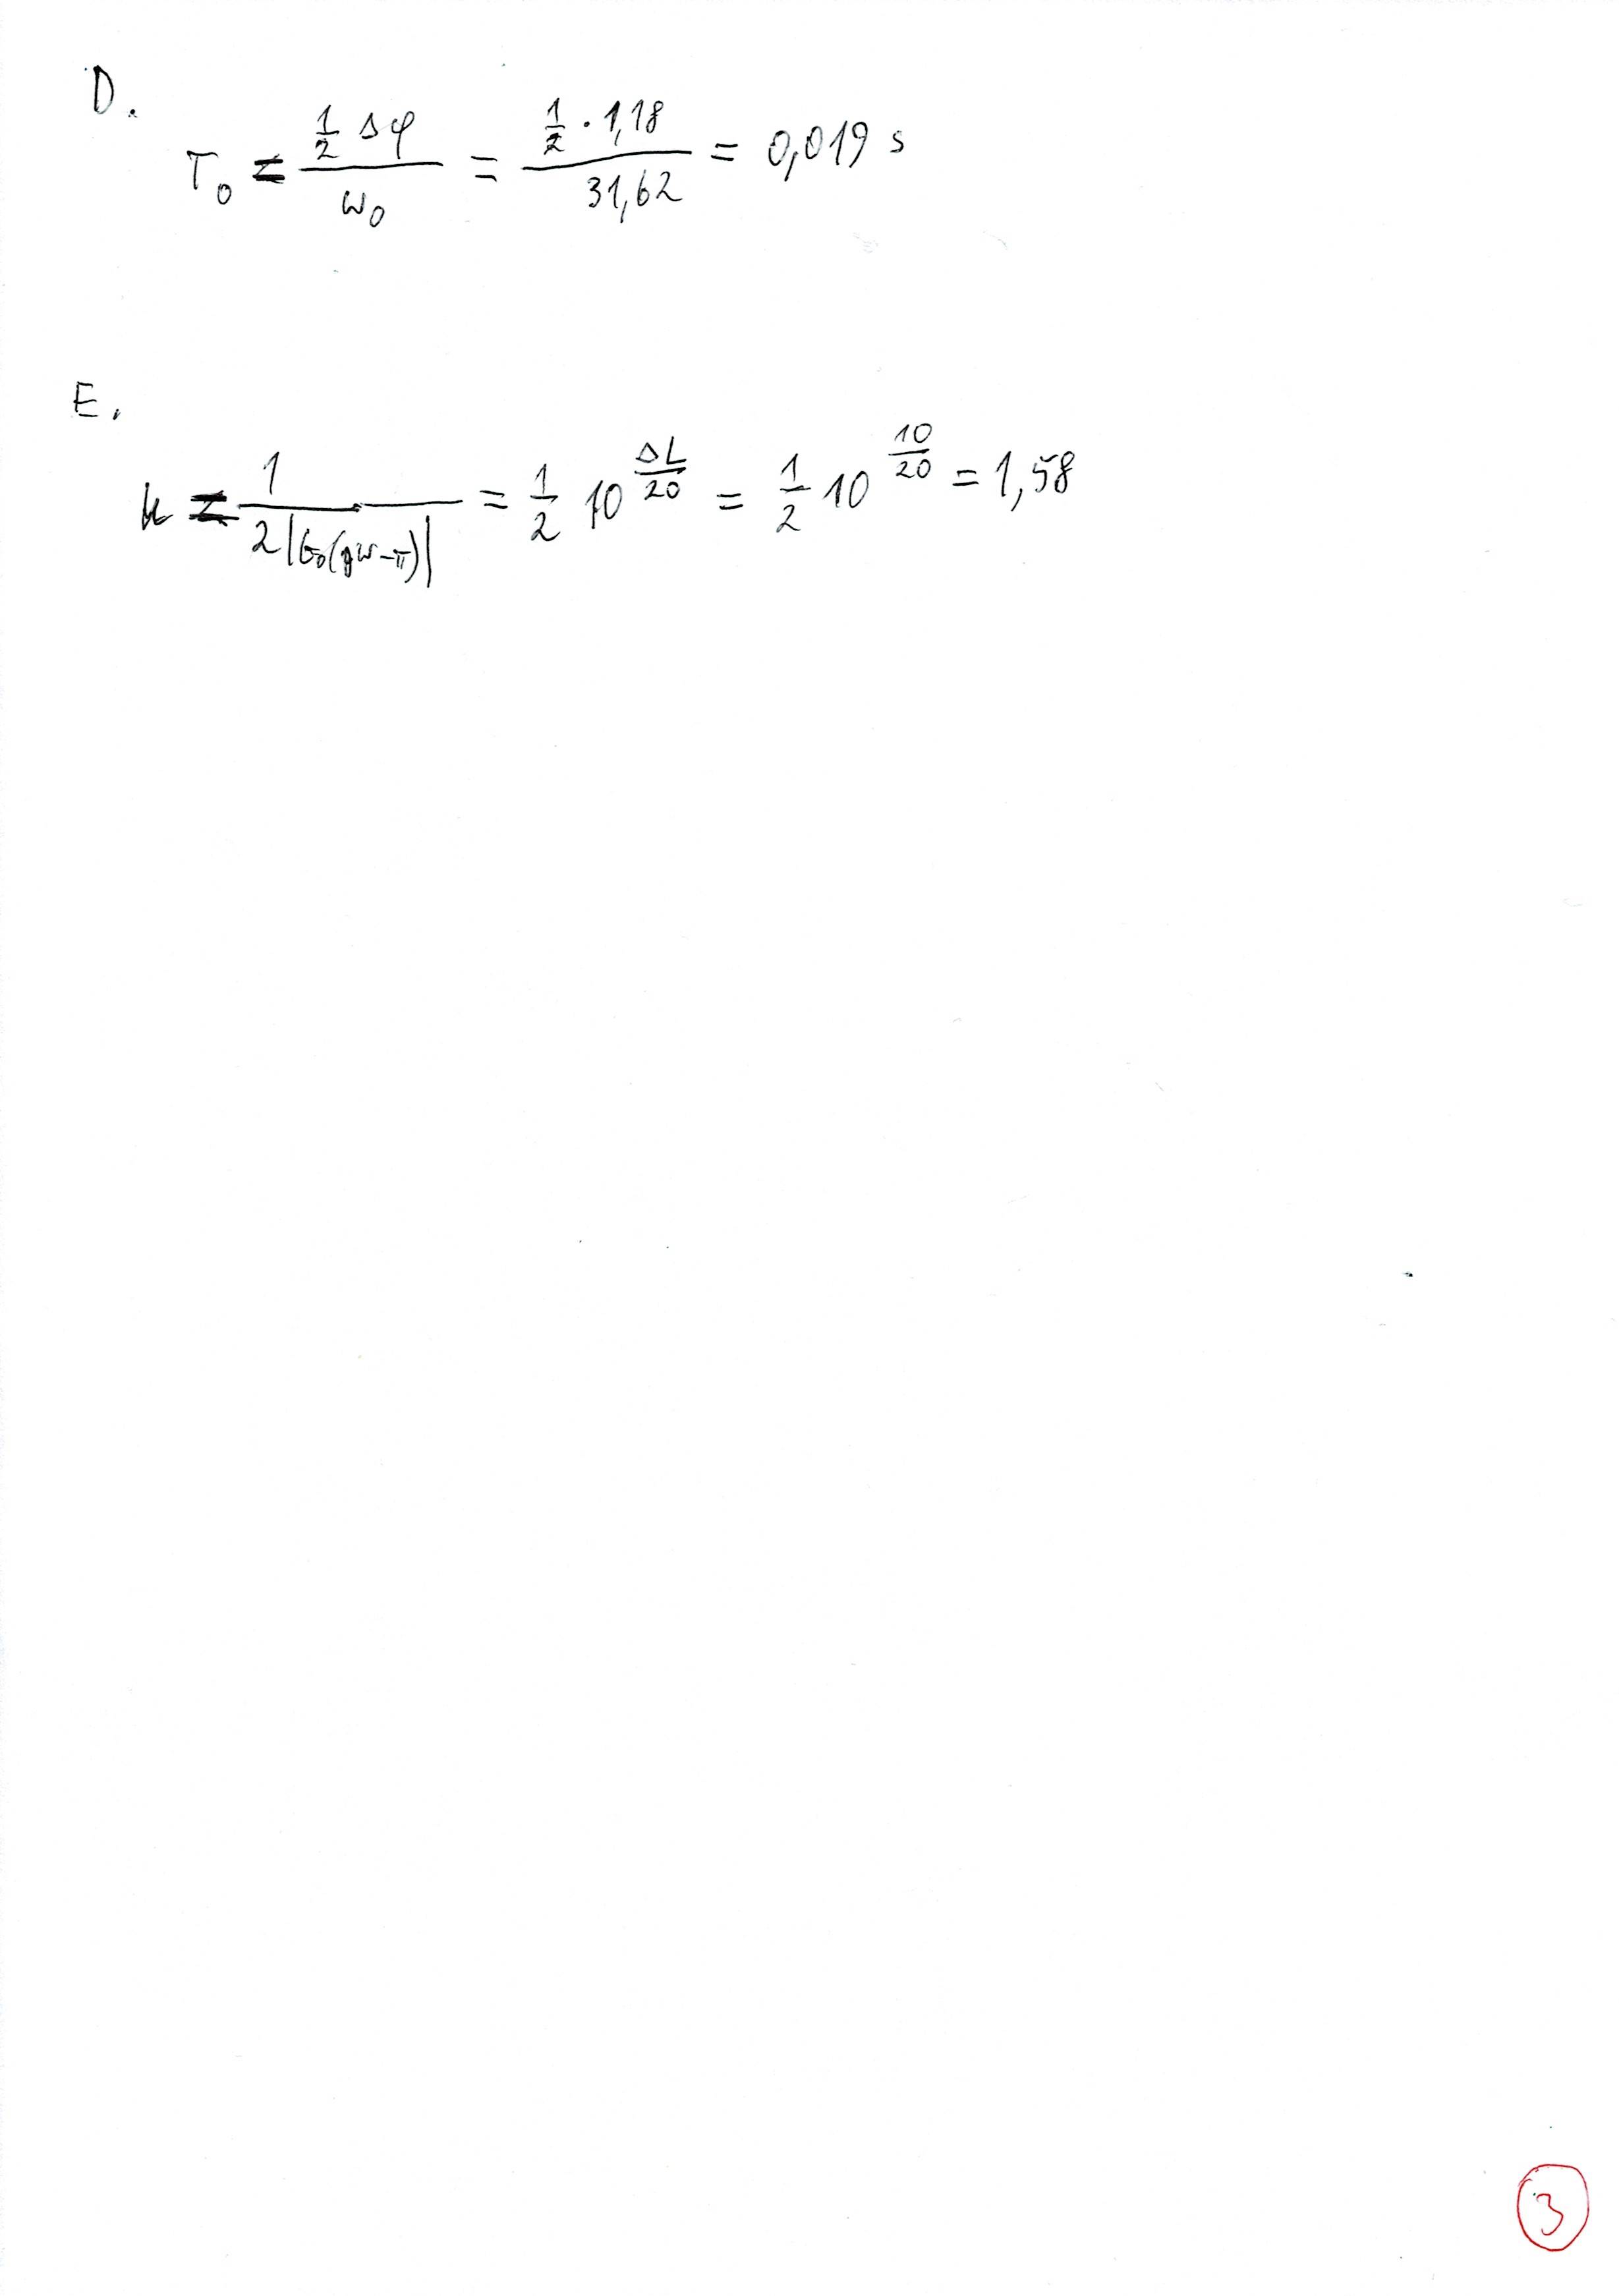 D.
T₀ ≤ (½ Δφ)/ω₀ = (½ · 1,18)/31,62 = 0,019 s
E.
k ≤ 1/(2|G₀(jω-π)|) = ½ 10^(ΔL/20) = ½ 10^(10/20) = 1,58
3